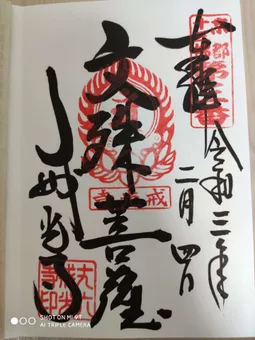 奉拝
令和三年
二月四日
文殊菩薩
戒光寺
SHOT ON MI 9T
AI TRIPLE CAMERA